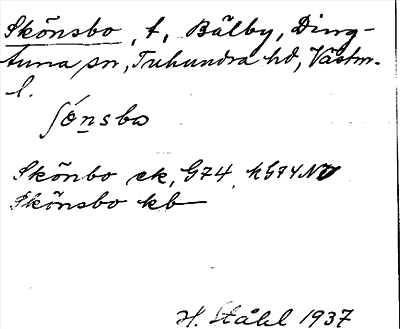 Skönsbo, t, Bälby, Ding-
tuna sn, Tuhundra hd, Västm.
l.
ʃónsbo
Skönbo ek, G74, kG74NV
Skönsbo kb
H. Ståhl 1937